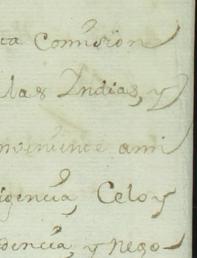 ca Comision
las Indias, y
conveniente a mi
igencia, Celo y
dencia, y nego-